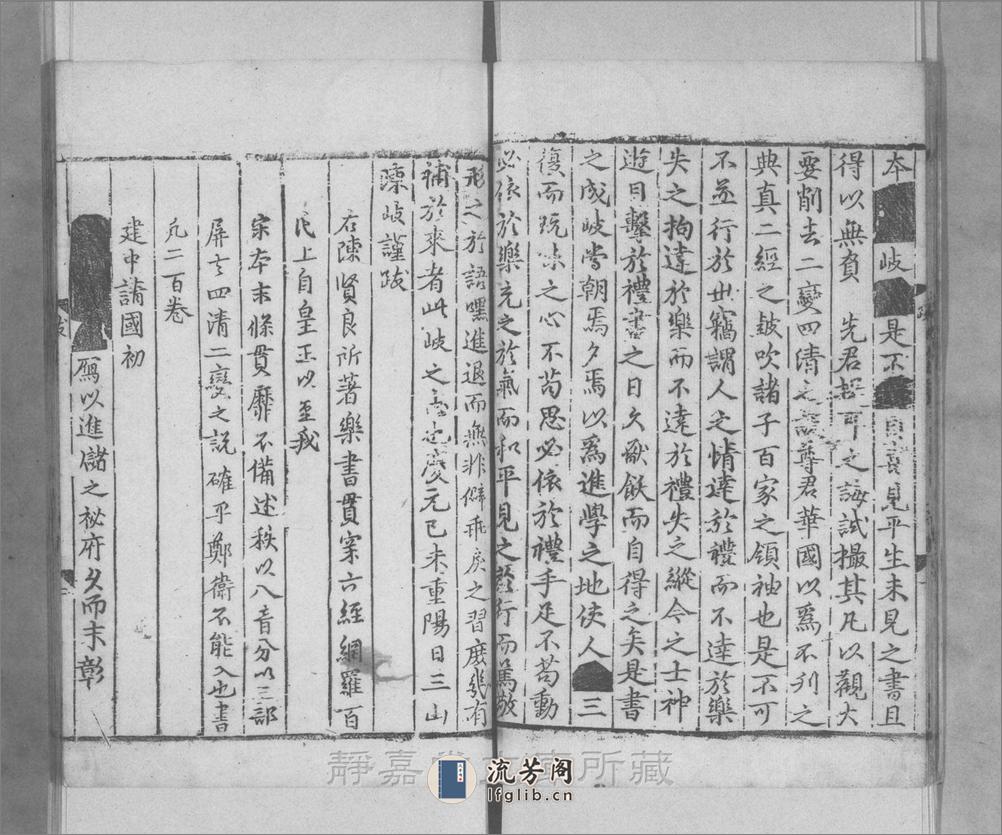 本岐是不見平生未見之書且
得以無負　先君之誨試撮其凡以觀大
要削去二變四清之尊君華國以爲不刋之
典真二經之鼓吹諸子百家之領袖也是不可
不並行於世竊謂人之情達於禮而不達於樂
失之拘達於樂而不達於禮失之縱今之士神
遊目擊於禮書之日久厭飫而自得之矣是書
之成岐嘗朝焉夕焉以爲進學之地使人三
復而玩味之心不苟思必依於禮手足不苟動
必依於樂充之於氣而和平見之於行而篤敬
形之於語嘿進退而無非僻乖戾之習庶幾有
補於來者此岐之志也慶元己未重陽日三山
陳岐謹跋
右陳賢良所著樂書貫穿六經網羅百
氏上自皇王以至我
宋本末條貫靡不備述秩以八音分以三部
屏去四清二變之說確乎鄭衛不能入也書
凡二百卷
建中靖國初
鴈以進儲之祕府久而未彰
跋
靜嘉堂文庫所藏
流芳阁
lfglib.cn